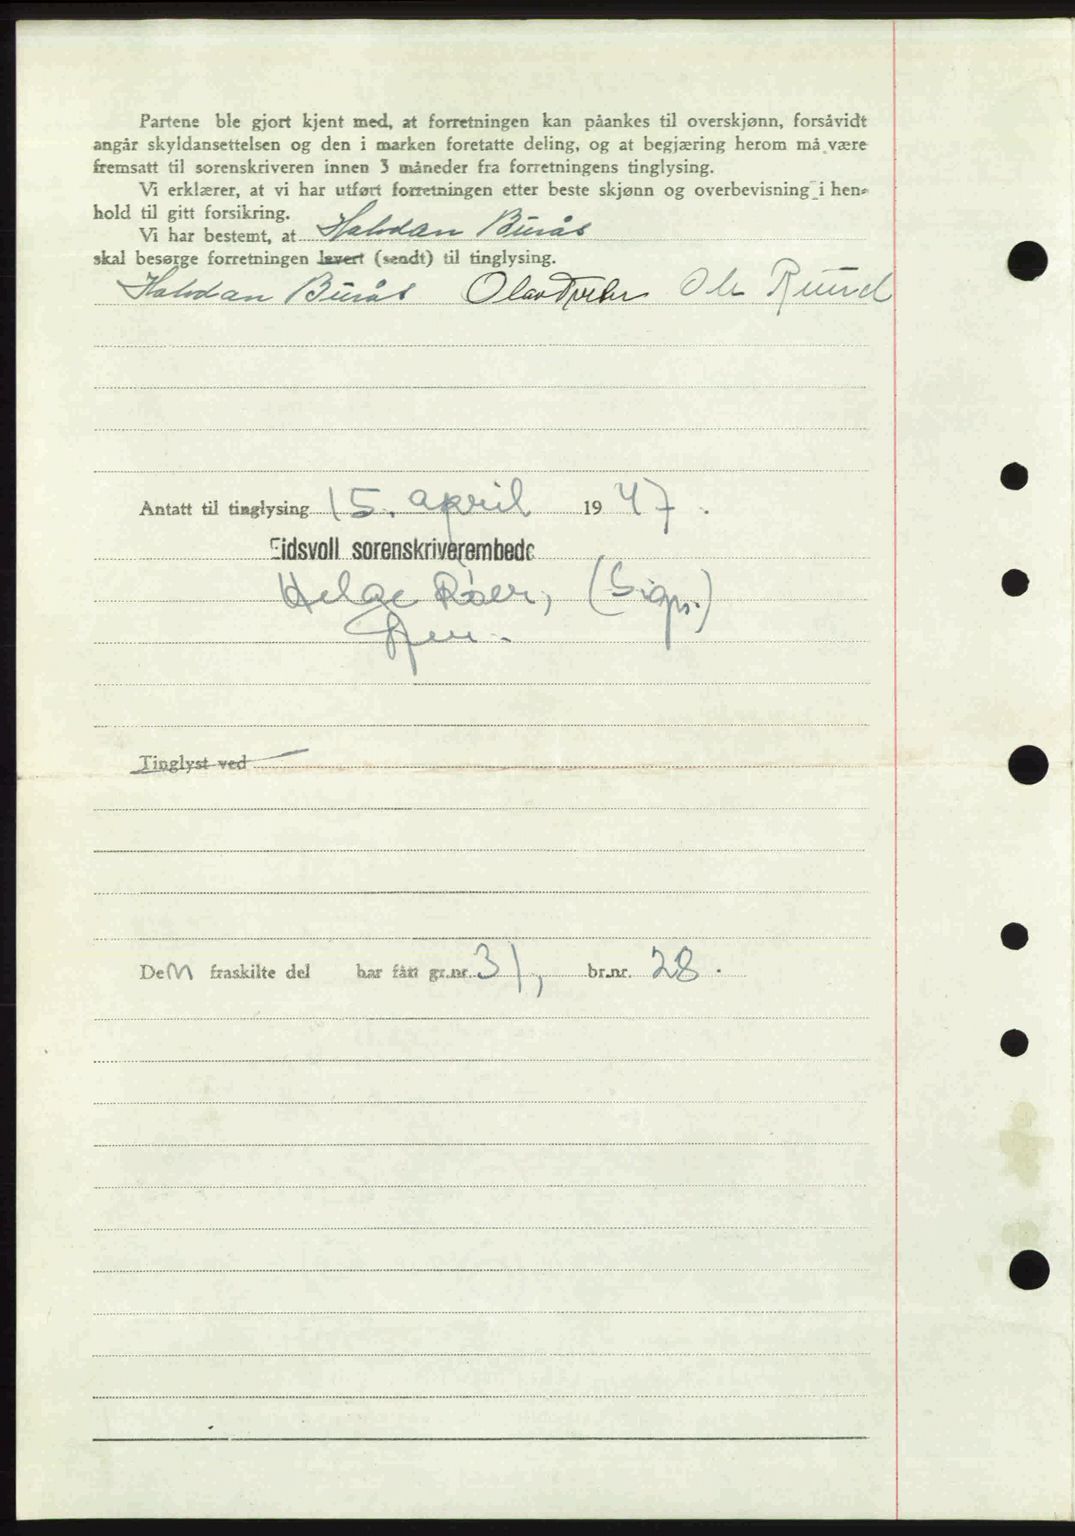 Partene ble gjort kjent med, at forretningen kan påankes til overskjønn, forsåvidt
angår skyldansettelsen og den i marken foretatte deling, og at begjæring herom må være
fremsatt til sorenskriveren innen 3 måneder fra forretningens tinglysing.
Vi erklærer, at vi har utført forretningen etter beste skjønn og overbevisning i hen-
hold til gitt forsikring.
Vi har bestemt, at Halvdan Burås
skal besørge forretningen levert (sendt) til tinglysing.
Halvdan Burås Olav Ole Ruud
Antatt til tinglysing 15. april 1947.
Eidsvoll sorenskriverembede
Helge Røer, (Sign.)
Tinglyst ved
Den fraskilte del har fått gr.nr. 31, br.nr. 28.